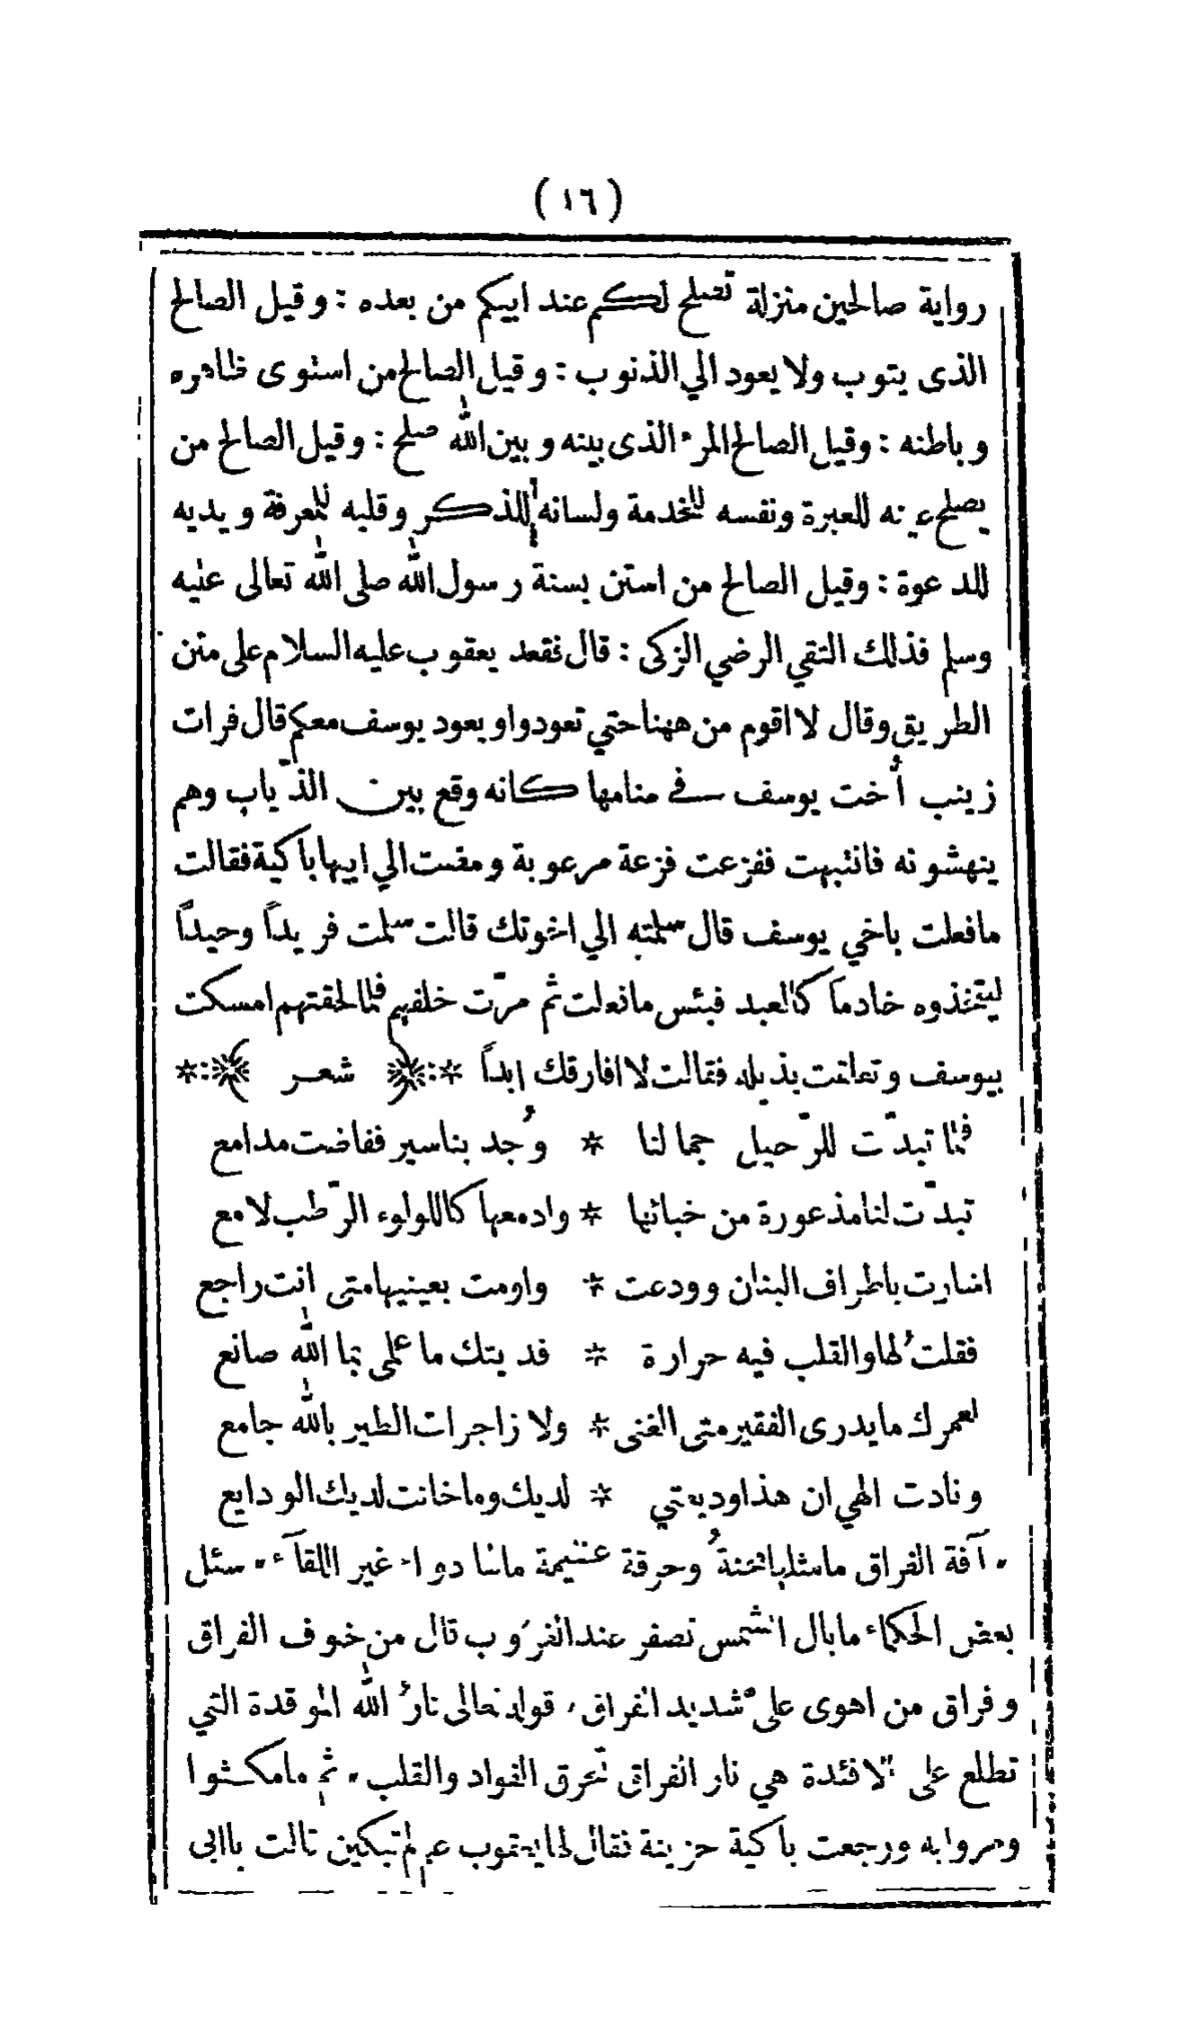 (١٦)
رواية صالحين منزلة تصلح لكم عند ابيكم من بعده : وقيل الصالح
الذى يتوب ولا يعود الي الذنوب : وقيل الصالح من استوى ظاهره
وباطنه : وقيل الصالح المرء الذى بينه وبين الله صلح : وقيل الصالح من
يصلح عينه للعبرة ونفسه للخدمة ولسانه للذكر وقلبه للمعرفة ويديه
للدعوة : وقيل الصالح من استن بسنة رسول الله صلى الله تعالى عليه
وسلم فذلك التقي الرضي الزكى : قال فقعد يعقوب عليه السلام على متن
الطريق وقال لا اقوم من ههنا حتي تعودوا ويعود يوسف معكم قال فرات
زينب أخت يوسف في منامها كانه وقع بين الذّياب وهم
ينهشونه فانتبهت ففزعت فزعة مرعوبة ومضت الي ابيها باكية فقالت
مافعلت باخي يوسف قال سلمته الي اخوتك قالت سلمت فريداً وحيداً
ليتخذوه خادماً كالعبد فبئس مافعلت ثم مرّت خلفهم فلما لحقتهم امسكت
بيوسف وتعلقت بذيله فقالت لا افارقك ابداً *:﴿ شعر ﴾:*
فلمّا تبدّت للرّحيل جمالنا * وُجد بناسير ففاضت مدامع
تبدّت لنا مذعورة من خبائها * وادمعها كاللولوء الرّطب لامع
اشارت باطراف البنان وودعت * واومت بعينيها متى انت راجع
فقلتُ لها والقلب فيه حرارة * فديتك ما علمى بما الله صانع
لعمرك مايدرى الفقير متى الغنى * ولا زاجرات الطير بالله جامع
ونادت الهي ان هذا وديعتي * لديك وما خانت لديك الودايع
. آفة الفراق مامثلها محنةُ وحرقة عظيمة مالها دواء غير اللقآء . سئل
بعض الحكماء مابال الشمس تصفر عند الغروب قال من خوف الفراق
وفراق من اهوى علىّ شديد الفراق ، قوله تعالى نارُ الله الموقدة التي
تطلع على الافئدة هي نار الفراق تحرق الفواد والقلب . ثم مامكثوا
ومروا به ورجعت باكية حزينة فقال لها يعقوب عم لم تبكين قالت ياابى